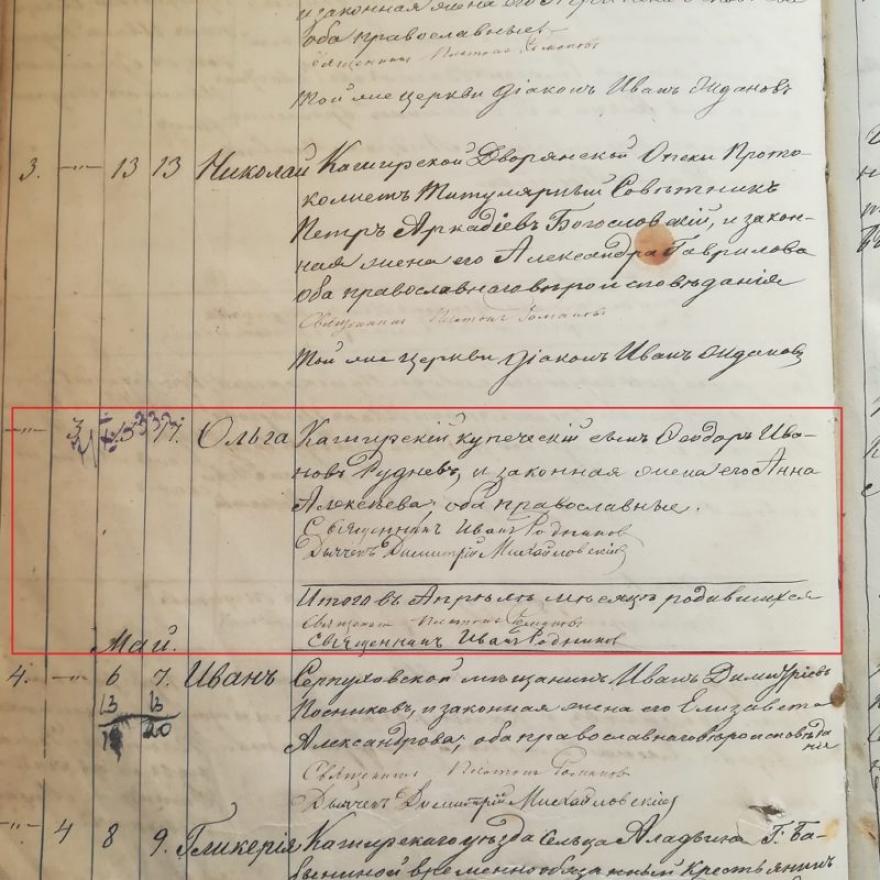 и законная жена его
оба православные
Священникъ Платонъ
Той же церкви Діаконъ Иванъ Ждановъ
3. —"— 13 13 Николай Каширской Дворянской Опеки Прото-
колистъ Титулярный Совѣтникъ
Петръ Аркадіевъ Богословскій, и закон-
ная жена его Александра Гаврилова
оба православнаго вѣроисповѣданія
Священникъ Платонъ
Той же церкви Діаконъ Иванъ Ждановъ
—"— 3 Ольга Каширскій купеческій сынъ Ѳеодоръ Ива-
новъ Рудневъ, и законная жена его Анна
Алексѣева, оба православные.
Священникъ Иванъ Родниковъ
Дьячекъ Димитрій Михайловскій
Итого въ Апрѣлѣ мѣсяцѣ родившихся
Священникъ Платонъ
Священникъ Иванъ Родниковъ
Май.
4. —"— 6 7. Иванъ Серпуховской мѣщанинъ Иванъ Димитріевъ
13 13 Посниковъ, и законная жена его Елизавета
20 Александрова, оба православнаго вѣроисповѣда
нія
Священникъ Платонъ
Дьячекъ Димитрій Михайловскій
—"— 4 8 9. Гликерія Каширскаго уѣзда сельца Аладьина Г. Ба-
временнообязанный Крестьянинъ